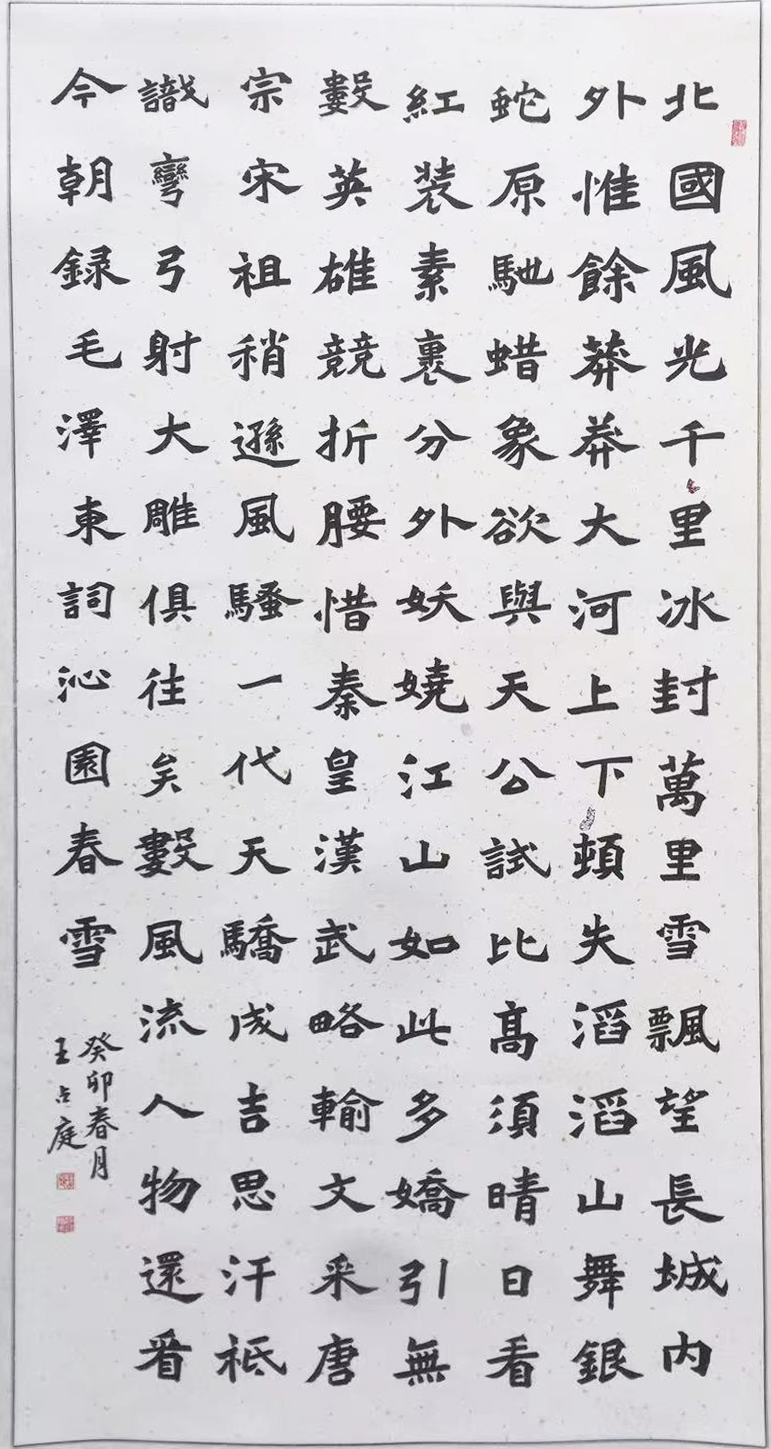 北國風光千里冰封萬里雪飄望長城内
外惟餘莽莽大河上下頓失滔滔山舞銀
蛇原馳蜡象欲與天公試比高須晴日看
紅装素裹分外妖嬈江山如此多嬌引無
數英雄競折腰惜秦皇漢武略輸文采唐
宗宋祖稍遜風騷一代天驕成吉思汗祗
識彎弓射大雕俱往矣數風流人物還看
今朝録毛澤東詞沁園春雪
癸卯春月
王占庭